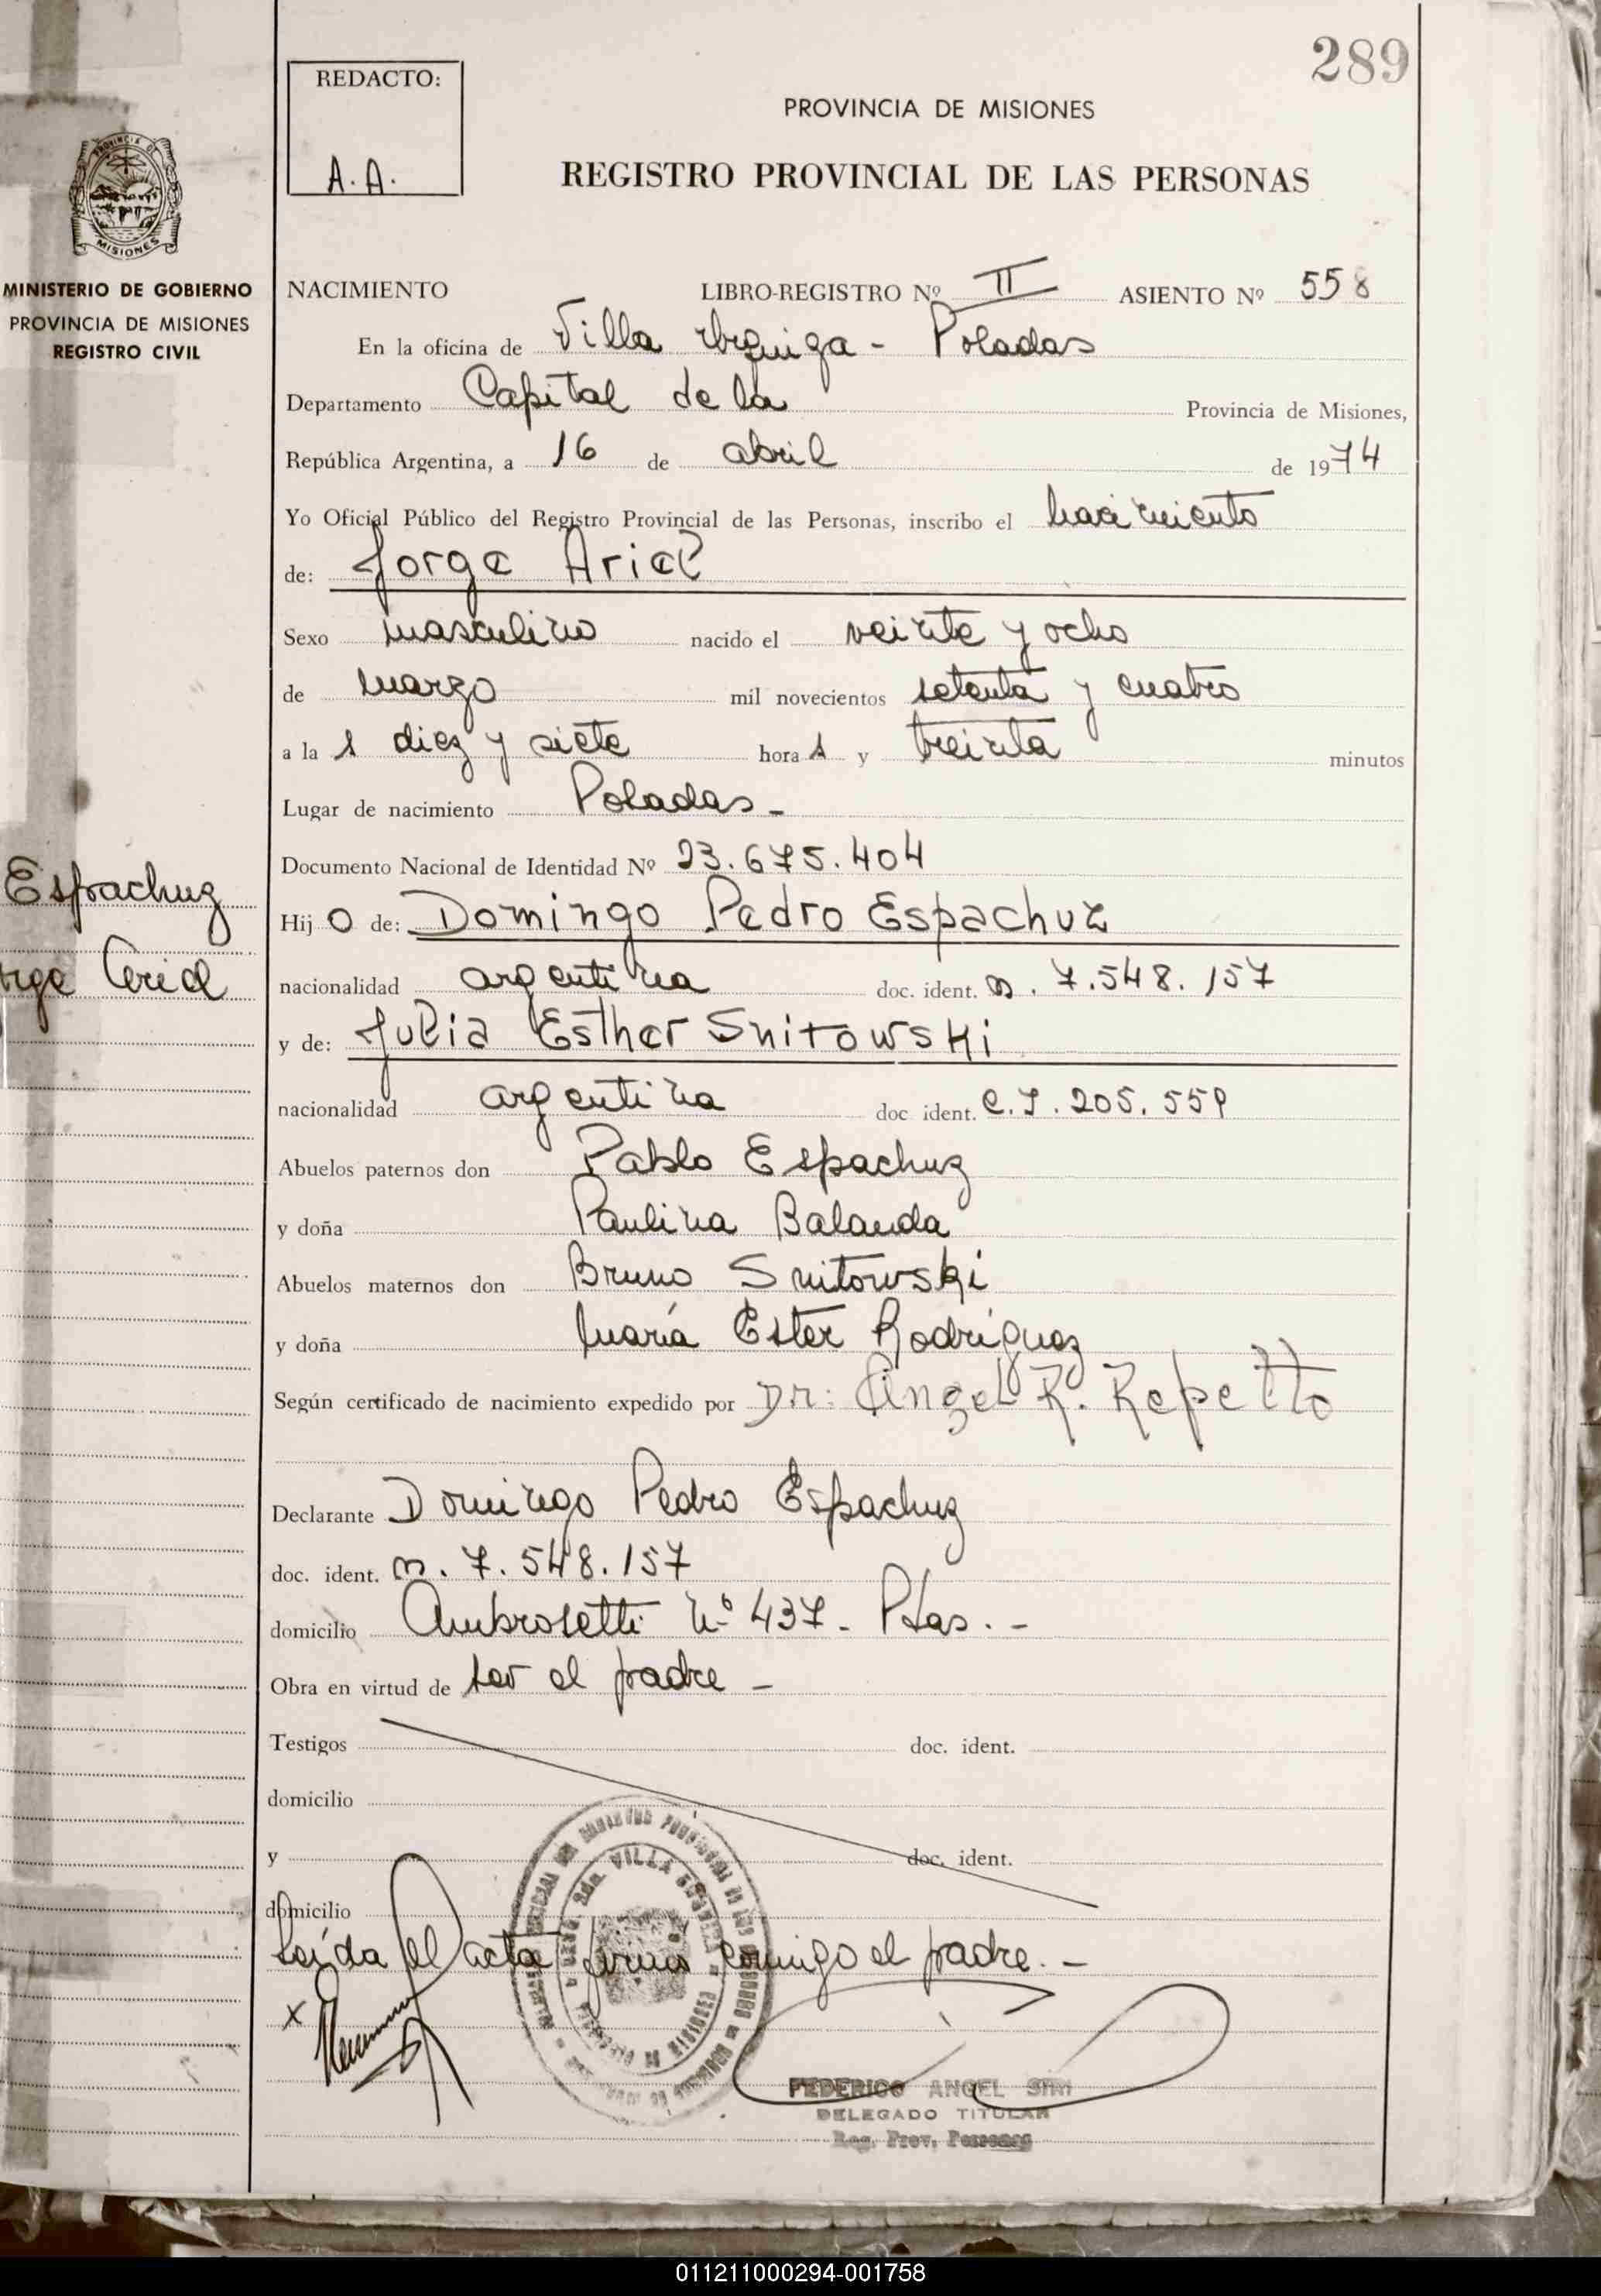 289
REDACTO:
A. A.
PROVINCIA DE MISIONES
REGISTRO PROVINCIAL DE LAS PERSONAS
PROVINCIA DE
MISIONES
MINISTERIO DE GOBIERNO
PROVINCIA DE MISIONES
REGISTRO CIVIL
NACIMIENTO LIBRO-REGISTRO Nº II ASIENTO Nº 558
En la oficina de Villa Urquiza - Posadas
Departamento Capital de la Provincia de Misiones,
República Argentina, a 16 de abril de 1974
Yo Oficial Público del Registro Provincial de las Personas, inscribo el nacimiento
de: Jorge Ariel
Sexo masculino nacido el veinte y ocho
de marzo mil novecientos setenta y cuatro
a la s diez y siete hora s y treinta minutos
Lugar de nacimiento Posadas -
Documento Nacional de Identidad Nº 23.675.404
Espachuz
Hij o de: Domingo Pedro Espachuz
rge Ariel
nacionalidad argentina doc. ident. m. 7.548.157
y de: Julia Esther Snitowski
nacionalidad argentina doc. ident. C.I. 205.559
Abuelos paternos don Pablo Espachuz
y doña Paulina Balanda
Abuelos maternos don Bruno Snitowski
y doña María Ester Rodríguez
Según certificado de nacimiento expedido por Dr: Angel R. Repetto
Declarante Domingo Pedro Espachuz
doc. ident. m. 7.548.157
domicilio Ambrosetti Nº 437 - Pdas. -
Obra en virtud de ser el padre -
Testigos doc. ident.
domicilio
y doc. ident.
domicilio
Leída el acta firma conmigo el padre. -
x
FEDERICO ANGEL
DELEGADO TITULAR
Reg. Prov. Personas
011211000294-001758